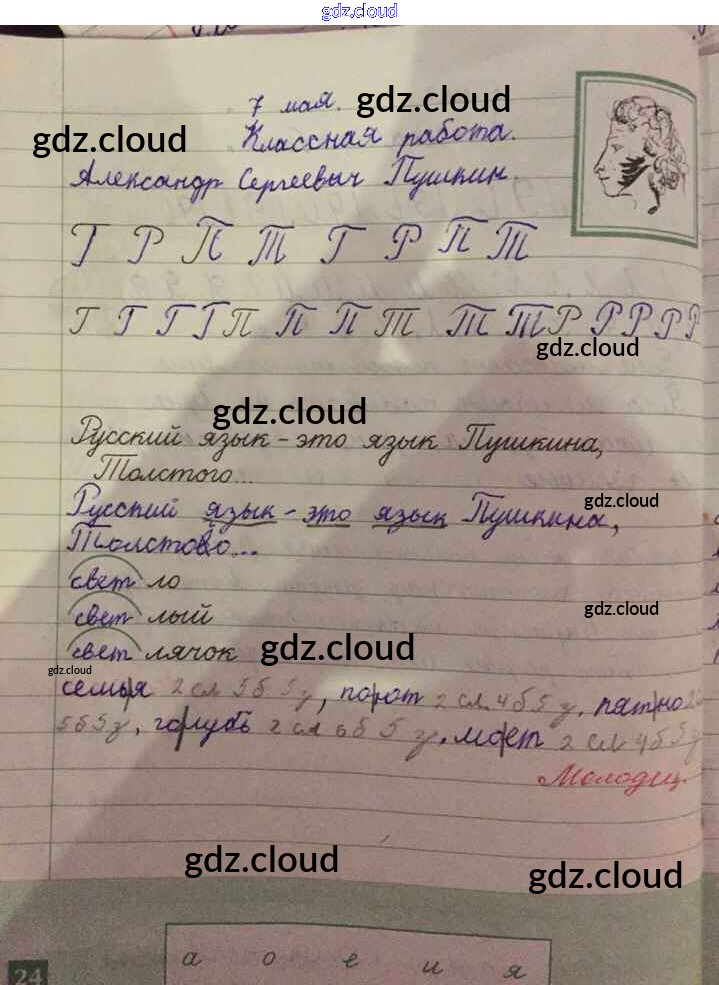 gdz.cloud
7 мая.
gdz.cloud
gdz.cloud
Классная работа.
Александр Сергеевич Пушкин.
Г Р П Т Г Р П Т
Г Г Г Г П П П Т Т Т Р Р Р Р Р
gdz.cloud
gdz.cloud
Русский язык - это язык Пушкина,
Толстого...
gdz.cloud
Русский язык - это язык Пушкина,
Толстово...
свет ло
gdz.cloud
свет лый
свет лячок
gdz.cloud
gdz.cloud
семья 2 сл 5б 5 з, порот 2 сл. 4б 5 з, пятно 2
5б 5з, голубь 2 сл 6б 5 з, 2 сл 4б 5 з
Молодец.
gdz.cloud
gdz.cloud
а о е и я
24